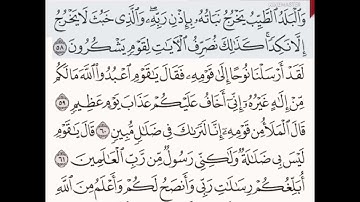 وَٱلْبَلَدُ ٱلطَّيِّبُ يَخْرُجُ نَبَاتُهُۥ بِإِذْنِ رَبِّهِۦ وَٱلَّذِى خَبُثَ لَا يَخْرُجُ
إِلَّا نَكِدًا كَذَٰلِكَ نُصَرِّفُ ٱلْءَايَٰتِ لِقَوْمٍ يَشْكُرُونَ ٥٨
لَقَدْ أَرْسَلْنَا نُوحًا إِلَىٰ قَوْمِهِۦ فَقَالَ يَٰقَوْمِ ٱعْبُدُوا۟ ٱللَّهَ مَا لَكُم
مِّنْ إِلَٰهٍ غَيْرُهُۥٓ إِنِّىٓ أَخَافُ عَلَيْكُمْ عَذَابَ يَوْمٍ عَظِيمٍ ٥٩
قَالَ ٱلْمَلَأُ مِن قَوْمِهِۦٓ إِنَّا لَنَرَىٰكَ فِى ضَلَٰلٍ مُّبِينٍ ٦٠ قَالَ يَٰقَوْمِ
لَيْسَ بِى ضَلَٰلَةٌ وَلَٰكِنِّى رَسُولٌ مِّن رَّبِّ ٱلْعَٰلَمِينَ ٦١
أُبَلِّغُكُمْ رِسَٰلَٰتِ رَبِّى وَأَنصَحُ لَكُمْ وَأَعْلَمُ مِنَ ٱللَّهِ